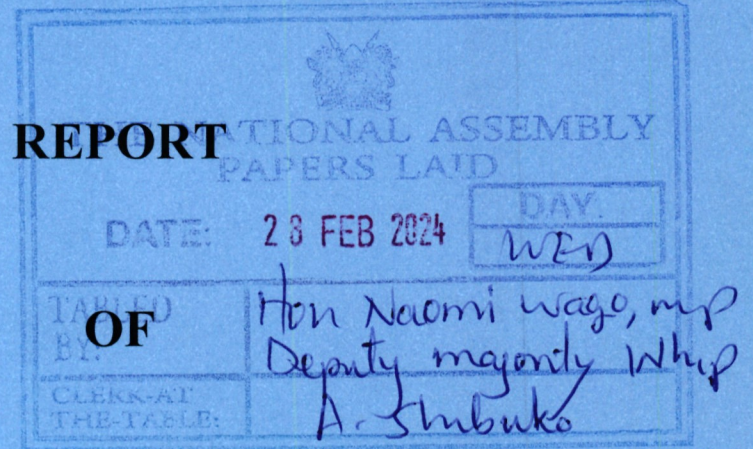 REPORT
THE NATIONAL ASSEMBLY
PAPERS LAID
DATE: 28 FEB 2024
DAY.
WED
TABLED BY: Hon Naomi Wago, mp
Deputy majority Whip
OF
CLERK-AT THE-TABLE: A. Shibuko